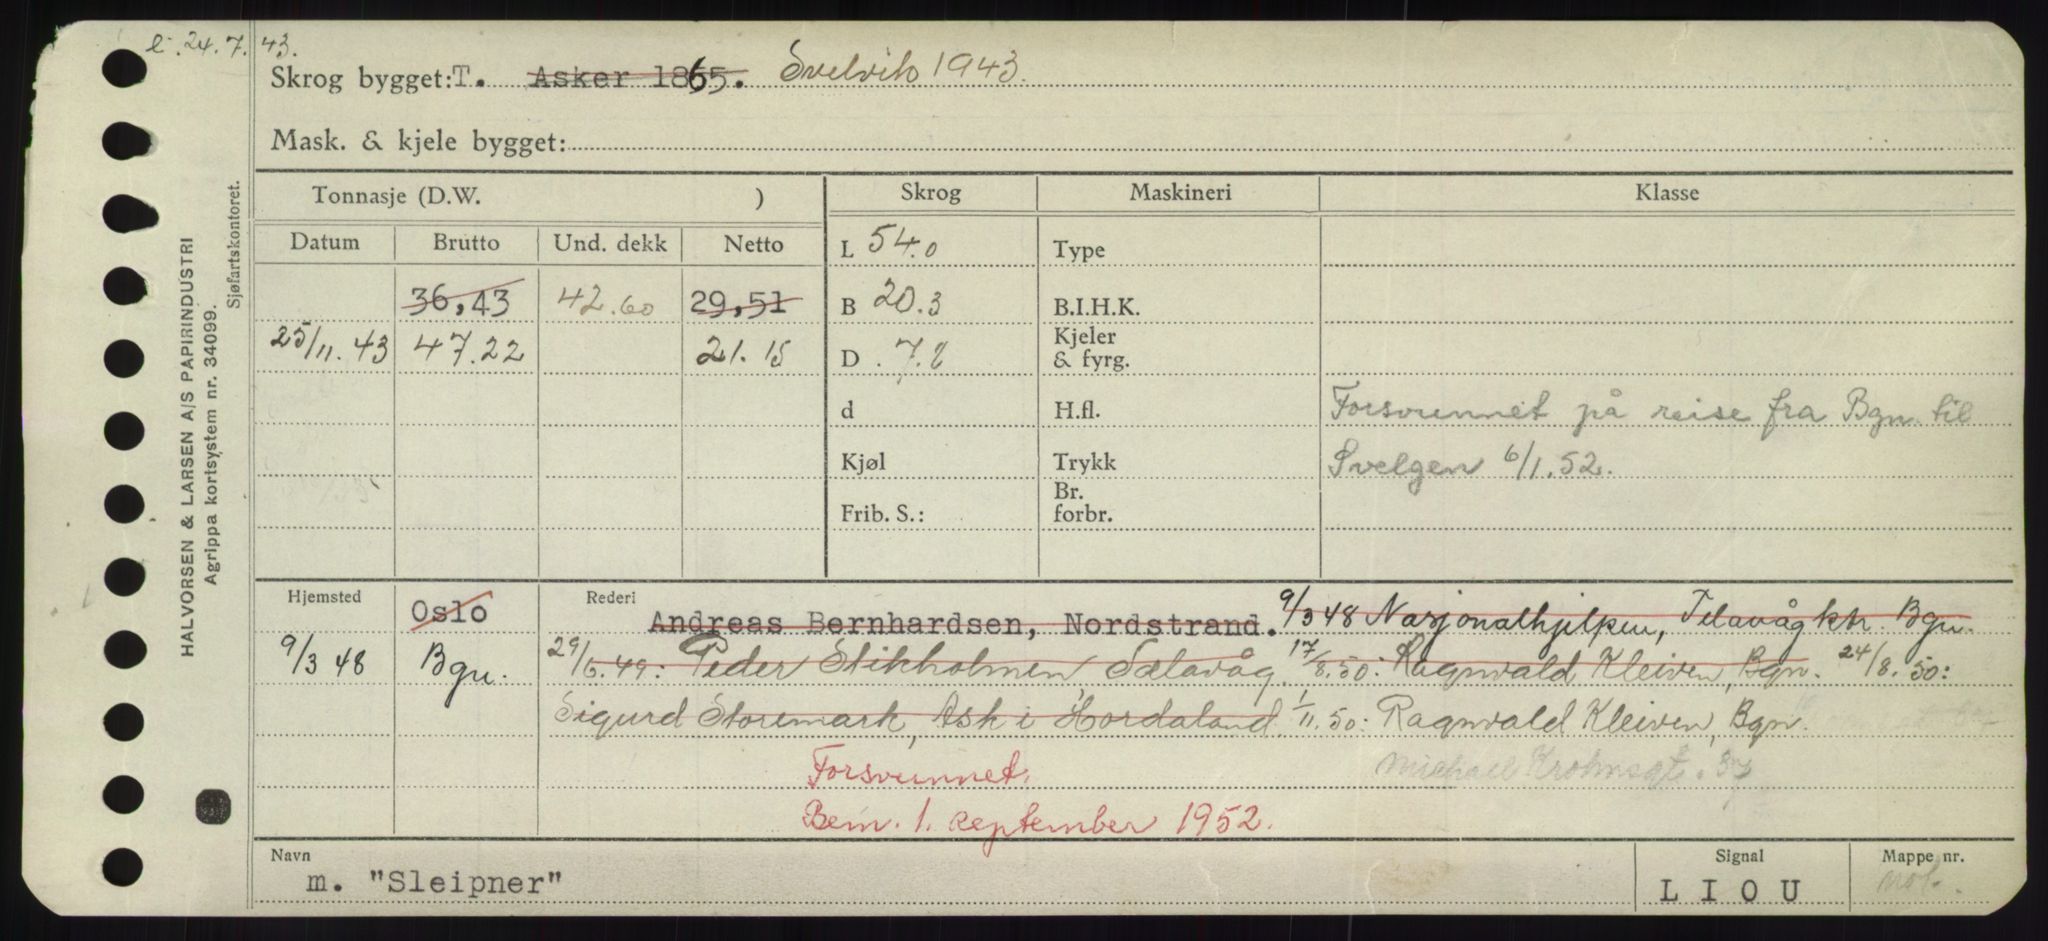 e. 24.7.43.
Skrog bygget: T. Asker 1865. Svelvik 1943.
Mask. & kjele bygget:
HALVORSEN & LARSEN A/S PAPIRINDUSTRI
Agrippa kortsystem nr. 34099.
Sjøfartskontoret.
Tonnasje (D.W. ) Skrog Maskineri Klasse
Datum Brutto Und. dekk Netto L 54.0 Type
36,43 42.60 29,51 B 20.3 B.I.H.K.
25/11.43 47.22 21.15 D 7.2 Kjeler & fyrg.
d H.fl. Forsvunnet på reise fra Bgn. til
Kjøl Trykk Svelgen 6/1.52.
Frib. S.: Br. forbr.
Hjemsted Oslo Rederi Andreas Bernhardsen, Nordstrand. 9/3 48 Nasjonalhjelpen, Telavåg ktr. Bgn.
9/3 48 Bgn. 29/6.49: Peder Stikholmen Sælavåg 17/8.50: Ragnvald Kleiven, Bgn. 24/8.50:
Sigurd Storemark, Ask i Hordaland. 1/11.50: Ragnvald Kleiven, Bgn.
Forsvunnet. Michael Krohnsgt. 37
Bem. 1. september 1952.
Navn Signal Mappe nr.
m. "Sleipner" L I O U